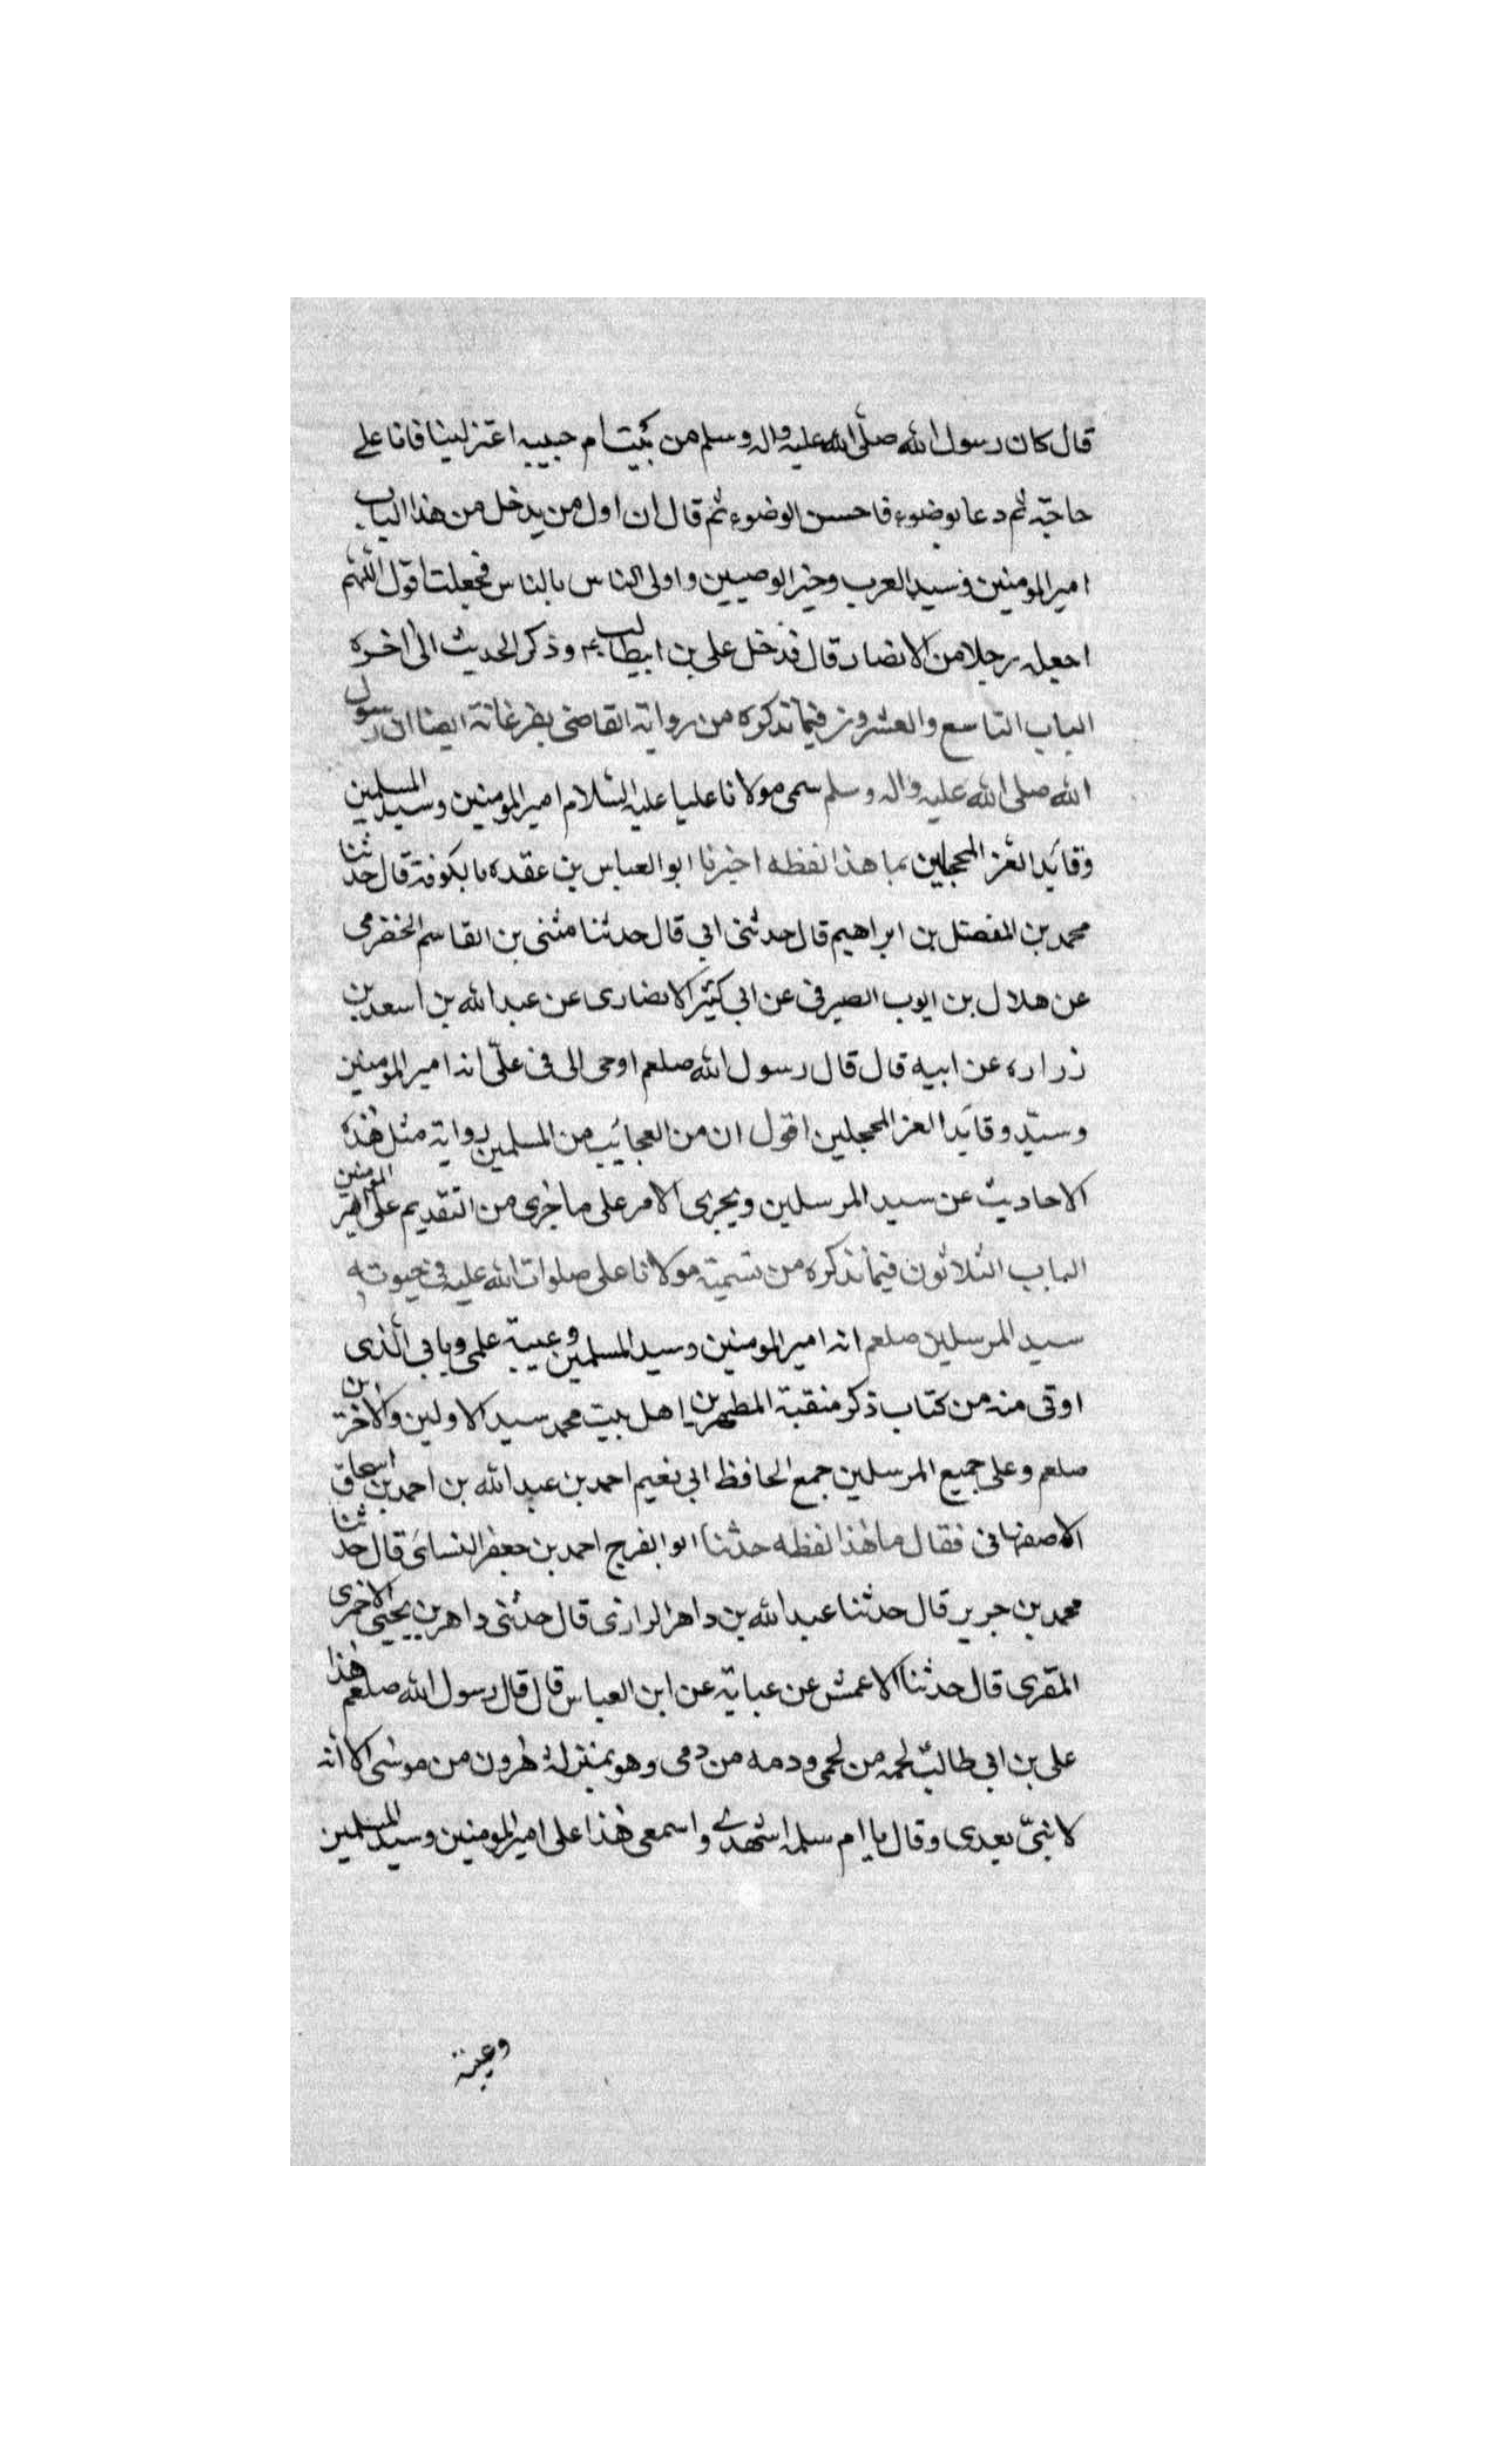 قال كان رسول الله صلّى الله عليه واله وسلم من بيت ام حبيبه اعتزلينا فانا على
حاجة ثم دعا بوضوء فاحسن الوضوء ثم قال ان اول من يدخل من هذا الباب
امير المومنين وسيد العرب وخير الوصيين واولى الناس بالناس فجعلت اقول اللهم
اجعله رجلا من الانصار قال فدخل على بن ابيطالب وذكر الحديث الى اخره
الباب التاسع والعشرون فيما نذكره من رواية القاضى بفرغانة ايضا ان رسول
الله صلى الله عليه واله وسلم سمى مولانا عليا عليه السّلام امير المومنين وسيد المسلمين
وقائد الغر المحجلين بما هذا لفظه اخبرنا ابو العباس بن عقده بالكوفة قال حدثنا
محمد بن المفضل بن ابراهيم قال حدثنى ابي قال حدثنا مثنى بن القاسم الحضرمى
عن هلال بن ايوب الصيرفى عن ابي كثير الانصارى عن عبد الله بن اسعد بن
زراره عن ابيه قال قال رسول الله صلعم اوحى الى فى علىّ انه امير المومنين
وسيّد وقائد الغر المحجلين اقول ان من العجائب من المسلمين رواية مثل هذه
الاحاديث عن سيد المرسلين ويجرى الامر على ما جرى من التقديم على امير المومنين
الباب الثلاثون فيما نذكره من تسمية مولانا على صلوات الله عليه فى حيوته
سيد المرسلين صلعم انه امير المومنين وسيد المسلمين وعيبة علمى وبابي الّذى
اوتى منه من كتاب ذكر منقبة المطهرين اهل بيت محمد سيد الاولين والاخرين
صلعم وعلى جميع المرسلين جمع الحافظ ابي نعيم احمد بن عبد الله بن احمد بن اسحاق
الاصفهانى فقال ما هذا لفظه حدثنا ابو الفرج احمد بن جعفر النسائى قال حدثنا
محمد بن جرير قال حدثنا عبد الله بن داهر الرازى قال حدثنى داهر بن يحيى الاحمرى
المقرى قال حدثنا الاعمش عن عباية عن ابن العباس قال قال رسول الله صلعم هذا
على بن ابي طالب لحمه من لحمى ودمه من دمى وهو بمنزلة هرون من موسى الا انه
لا نبىّ بعدى وقال يا ام سلمه اشهدى واسمعى هذا على امير المومنين وسيد المسلمين
وعيبة